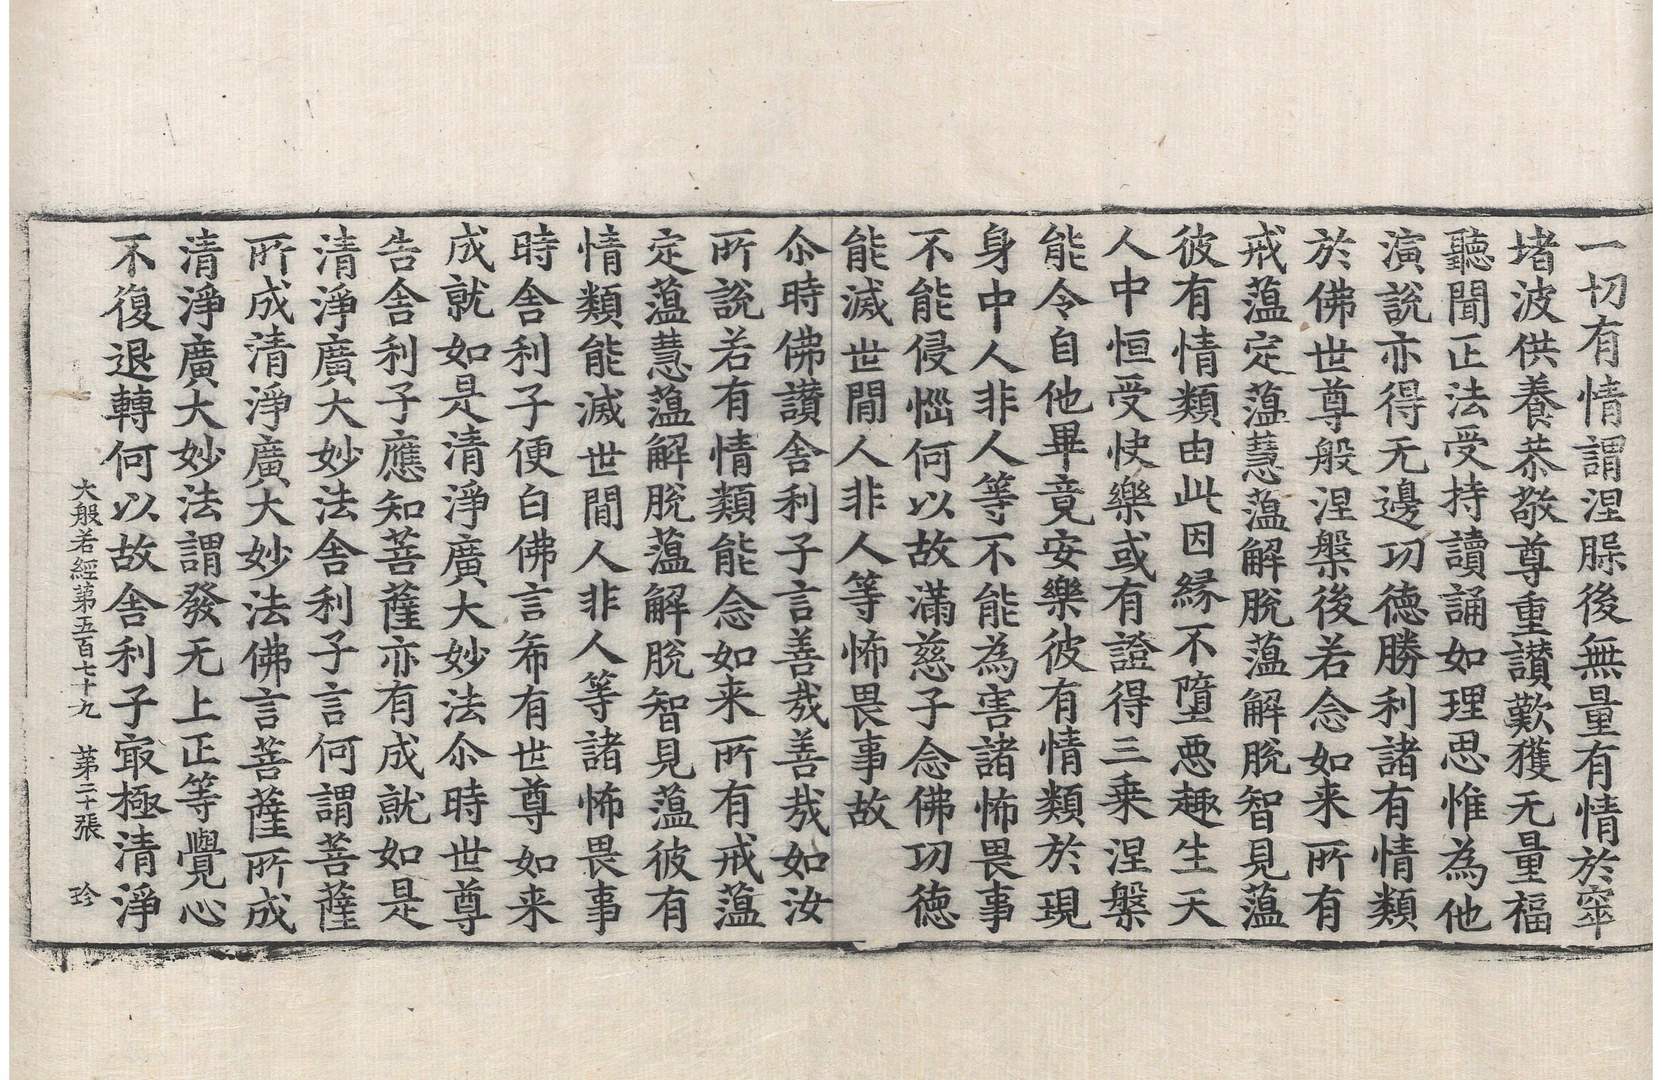 一切有情謂涅槃後無量有情於窣
堵波供養恭敬尊重讃歎獲无量福
聽聞正法受持讀誦如理思惟為他
演說亦得无邊功德勝利諸有情類
於佛世尊般涅槃後若念如来所有
戒蕰定蕰慧蕰解脫蕰解脫智見蕰
彼有情類由此因縁不墮惡趣生天
人中恒受快樂或有證得三乘涅槃
能令自他畢竟安樂彼有情類於現
身中人非人等不能為害諸怖畏事
不能侵惱何以故滿慈子念佛功德
能滅世間人非人等怖畏事故
尒時佛讃舍利子言善㢤善㢤如汝
所說若有情類能念如来所有戒蕰
定蕰慧蕰解脫蕰解脫智見蕰彼有
情類能滅世間人非人等諸怖畏事
時舍利子便白佛言希有世尊如来
成就如是清淨廣大妙法尒時世尊
告舍利子應知菩薩亦有成就如是
清淨廣大妙法舍利子言何謂菩薩
所成清淨廣大妙法佛言菩薩所成
清淨廣大妙法謂發无上正等覺心
不復退轉何以故舍利子冣極清淨
大般若經苐五百七十九　苐二十張　珍